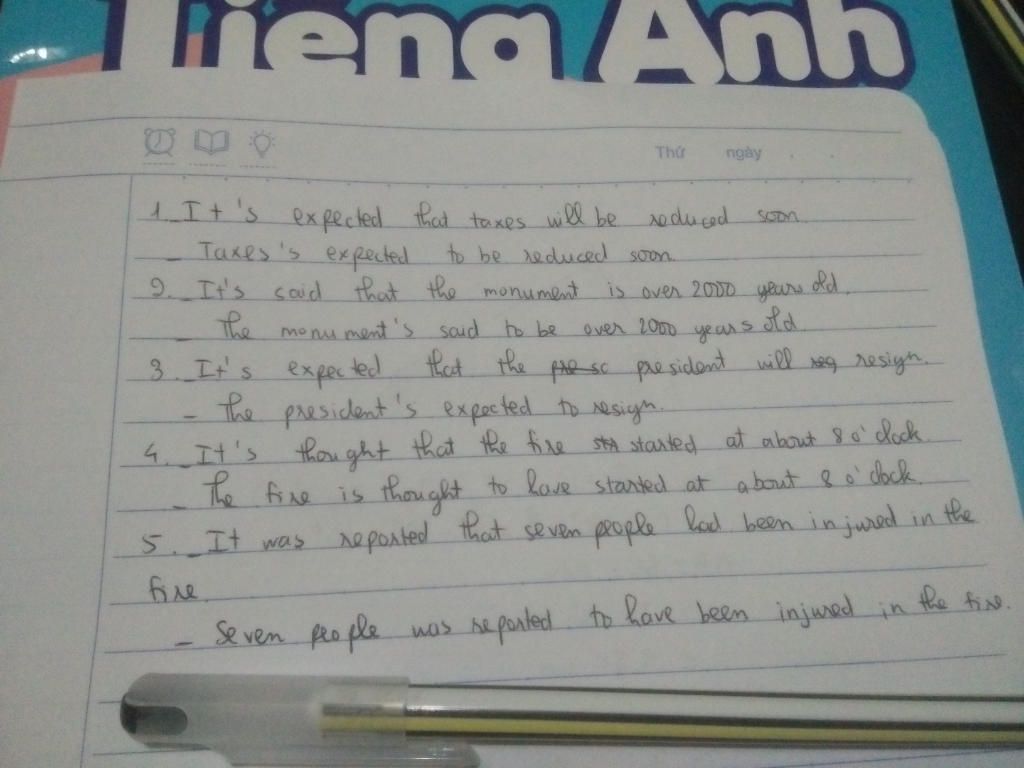 Tiếng Anh
Thứ ngày . .
1._ It's expected that taxes will be reduced soon.
_ Taxes's expected to be reduced soon.
2._ It's said that the monument is over 2000 years old.
_ The monument's said to be over 2000 years old
3._ It's expected that the pre sc president will reg resign.
- The president's expected to resign.
4._ It's thought that the fire sta started at about 8 o'clock.
_ The fire is thought to have started at about 8 o'clock.
5._ It was reported that seven people had been injured in the
fire
- Seven people was reported to have been injured in the fire.